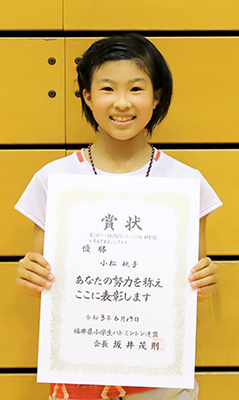 賞状
優勝
小松 桃子
あなたの努力を称え
ここに表彰します
令和3年6月13日
福井県小学生バドミントン連盟
会長 坂井 茂則